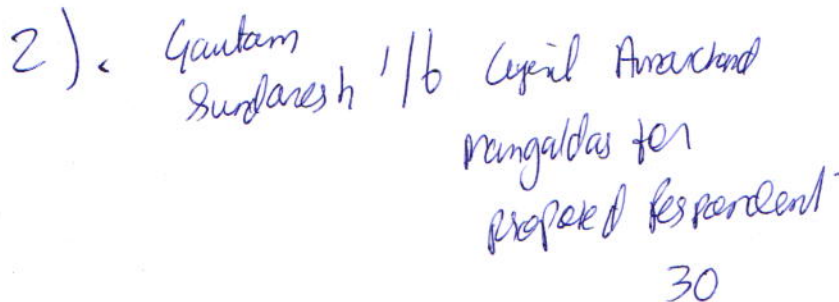 2). Gautam
Sundaresh i/b Cyril Amarchand
Mangaldas for
proposed Respondent
30